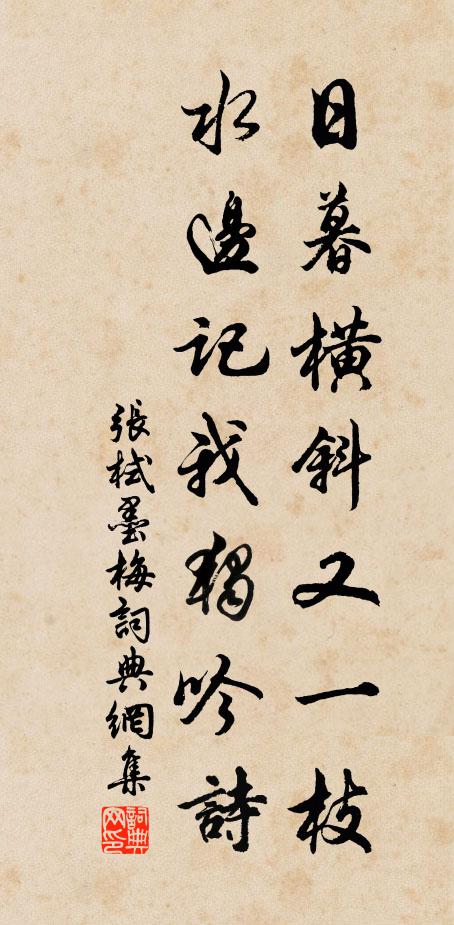 日暮橫斜又一枝
水邊記我獨吟詩
張栻墨梅詞典網集
詞典网印